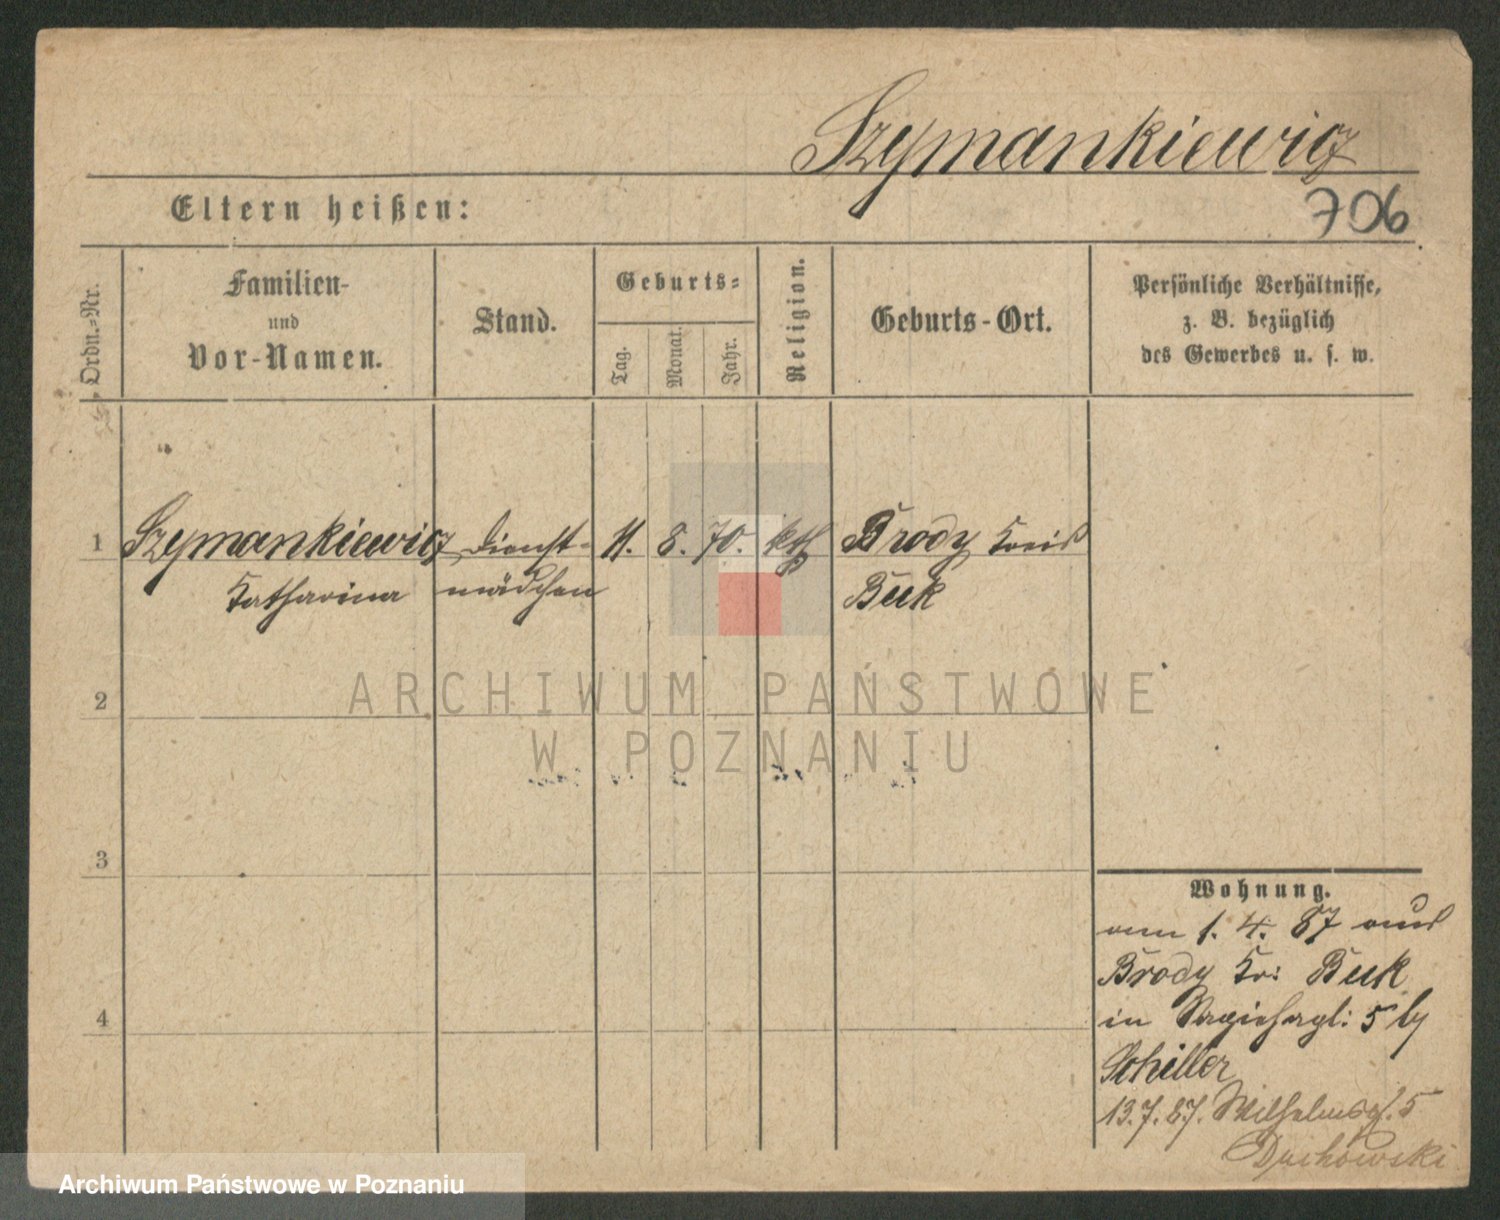 Szymankiewicz
Eltern heißen:
706
Ordn.-Nr.
Familien-
und
Vor-Namen.
Stand.
Geburts-
Tag.
Monat.
Jahr.
Religion.
Geburts-Ort.
Persönliche Verhältnisse,
z. B. bezüglich
des Gewerbes u. s. w.
1 Szymankiewicz Dienst- 11. 8. 70. kth Brody Kreis
Katharina mädchen Buk
2
ARCHIWUM PAŃSTWOWE
W POZNANIU
3
4
Wohnung.
1. 4. 87 aus
Brody Kr: Buk
in 5 by
Schiller
13.7.87. Wilhelmspl. 5
Duchowski
Archiwum Państwowe w Poznaniu